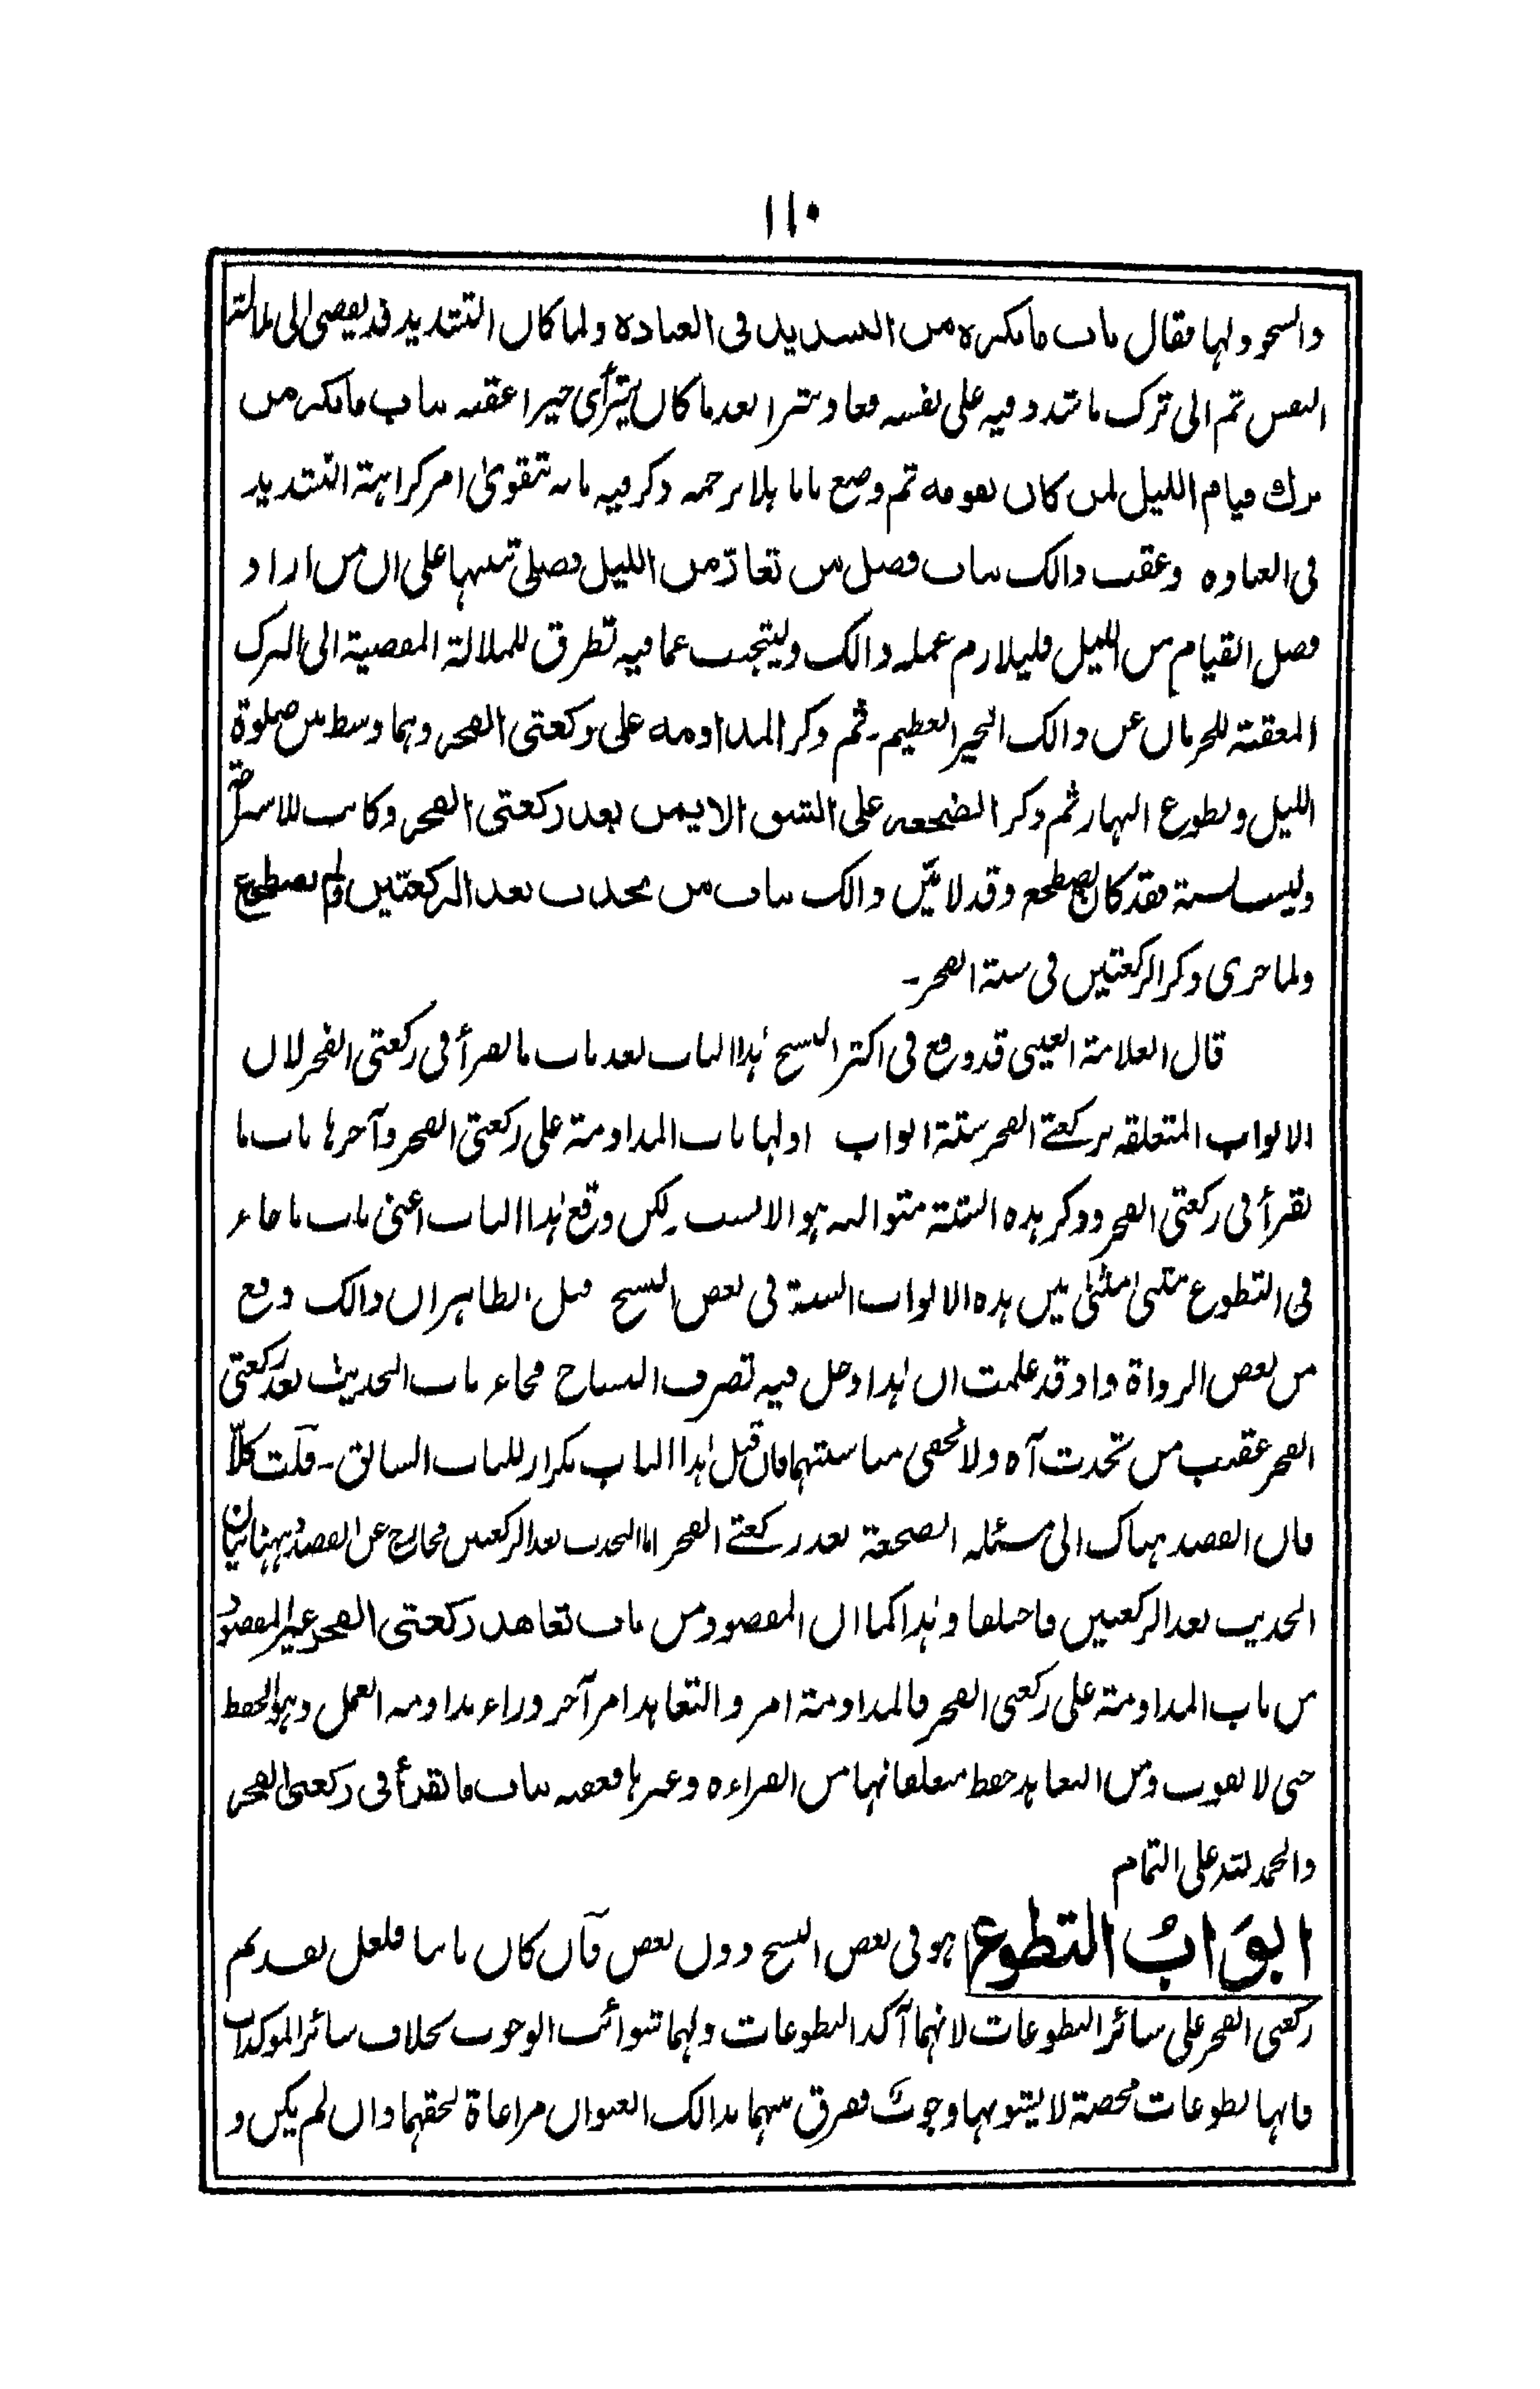 ١١٠
والنحو ولها فقال باب ما يكره من التشديد فى العبادة ولما كان التشديد قد يفضى الى ملالة
النفس ثم الى ترك ما شدد فيه على نفسه فعاد شرا بعد ما كان يترأى خيرا عقبه بباب ما يكره من
ترك قيام الليل لمن كان يقومه ثم وضع بابا بلا ترجمه ذكر فيه ما به تتقوىٰ امر كراهة التشديد
فى العباده وعقب ذالك بباب فضل من تعارّ من الليل فصلى تنبيها على ان من اراد
فضل القيام من الليل فليلازم عمله ذالك وليتجنب عما فيه تطرق للملالة المفضية الى الترك
المعقبة للحرمان عن ذالك الخير العظيم ـ ثم ذكر المداومه على ركعتى الفجر وهما وسط بين صلوة
الليل وتطوع النهار ثم ذكر الضجعه على الشق الايمن بعد ركعتى الفجر وكانت للاستراحة
وليست سنة فقد كان يضطجع وقد لا بيّن ذالك بباب من تحدث بعد الركعتين ولم يضطجع
ولما جرى ذكر الركعتين فى سنة الفجر ـ
قال العلامة العينى قد وقع فى اكثر النسخ هٰذا الباب بعد باب ما يقرأ فى ركعتى الفجر لان
الابواب المتعلقه بركعتے الفجر ستة ابواب اولها باب المداومة على ركعتى الفجر وآخرها باب ما
يقرأ فى ركعتى الفجر وذكر هذه الستة متواليه هو الانسب ـ لكن وقع هٰذا الباب اعنى باب ما جاء
فى التطوع مثنى مثنىٰ بين هذه الابواب الستة فى بعض النسخ قيل الظاهر ان ذالك وقع
من بعض الرواة واذ قد علمت ان هٰذا دخل فيه تصرف النساخ فجاء باب الحديث بعد ركعتى
الفجر عقيب من تحدث آه ولا تخفى مناسبتهما فان قيل هٰذا الباب تكرار للباب السابق ـ قلت كلّا
فان القصد هناك الى مسئله الضجعة بعد ركعتے الفجر اما التحدث بعد الركعتين فخارج عن القصد وههنا بيان
الحديث بعد الركعتين فاختلفا وهٰذا كما ان المقصود من باب تعاهد ركعتى الفجر غير المقصود
من باب المداومة على ركعتى الفجر فالمداومة امر والتعاهد امر آخر وراء مداومه العمل وهو الحفظ
حتى لا يفوت ومن التعاهد حفظ متعلقاتها من القراءه وغيرها فعقبه بباب ما يقرأ فى ركعتى الفجر
والحمد للّٰه على التمام
ابوَابُ التطوع هو فى بعض النسخ دون بعض فآن كان ثابتا فلعل تقديم
ركعتى الفجر على سائر التطوعات لانهما آكد التطوعات ولهما شوائب الوجوب بخلاف سائر الموكدات
فانها تطوعات محضة لا يشوبها وجوب ففرق بينهما بذالك العنوان مراعاة لحقهما وان لم يكن و